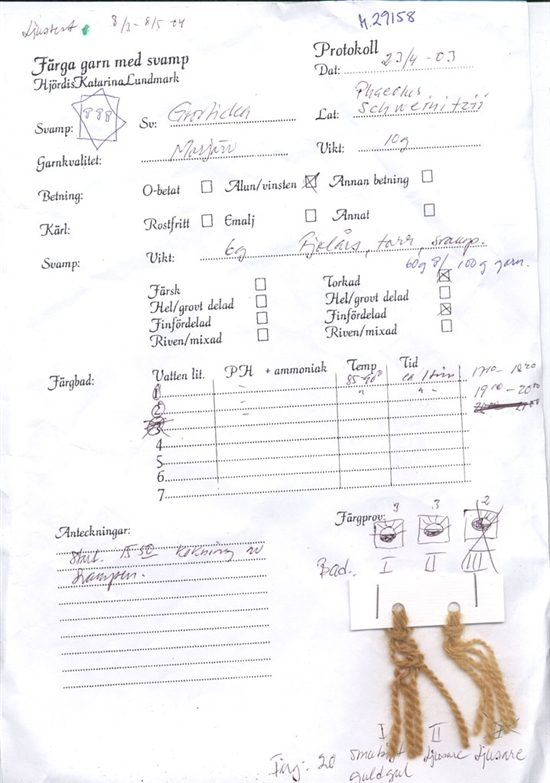 Ljustest 8/3 - 8/5 04
M.29158
Färga garn med svamp
Hjördis Katarina Lundmark
Protokoll
Dat: 23/4 - 03
Svamp: 888 Sv: Grovticka Lat: Phaeolus Schweinitzii
Garnkvalitet: Vikt: 10g
Betning: O-betat Alun/vinsten Annan betning
Kärl: Rostfritt Emalj Annat
Svamp: Vikt: 6g Fjolårs, torr, svamp.
60g / 100g garn.
Färsk Torkad
Hel/grovt delad Hel/grovt delad
Finfördelad Finfördelad
Riven/mixad Riven/mixad
Färgbad: Vatten lit. PH + ammoniak Temp Tid
1 85-90° ca 1 tim
2 " " 19
3
4
5
6
7
Anteckningar:
Start. kokning av
svampen.
Färgprov: 3 3 2
Bad.: I II III
I II
Färg: 20 Ljusare Ljusare
guldgul